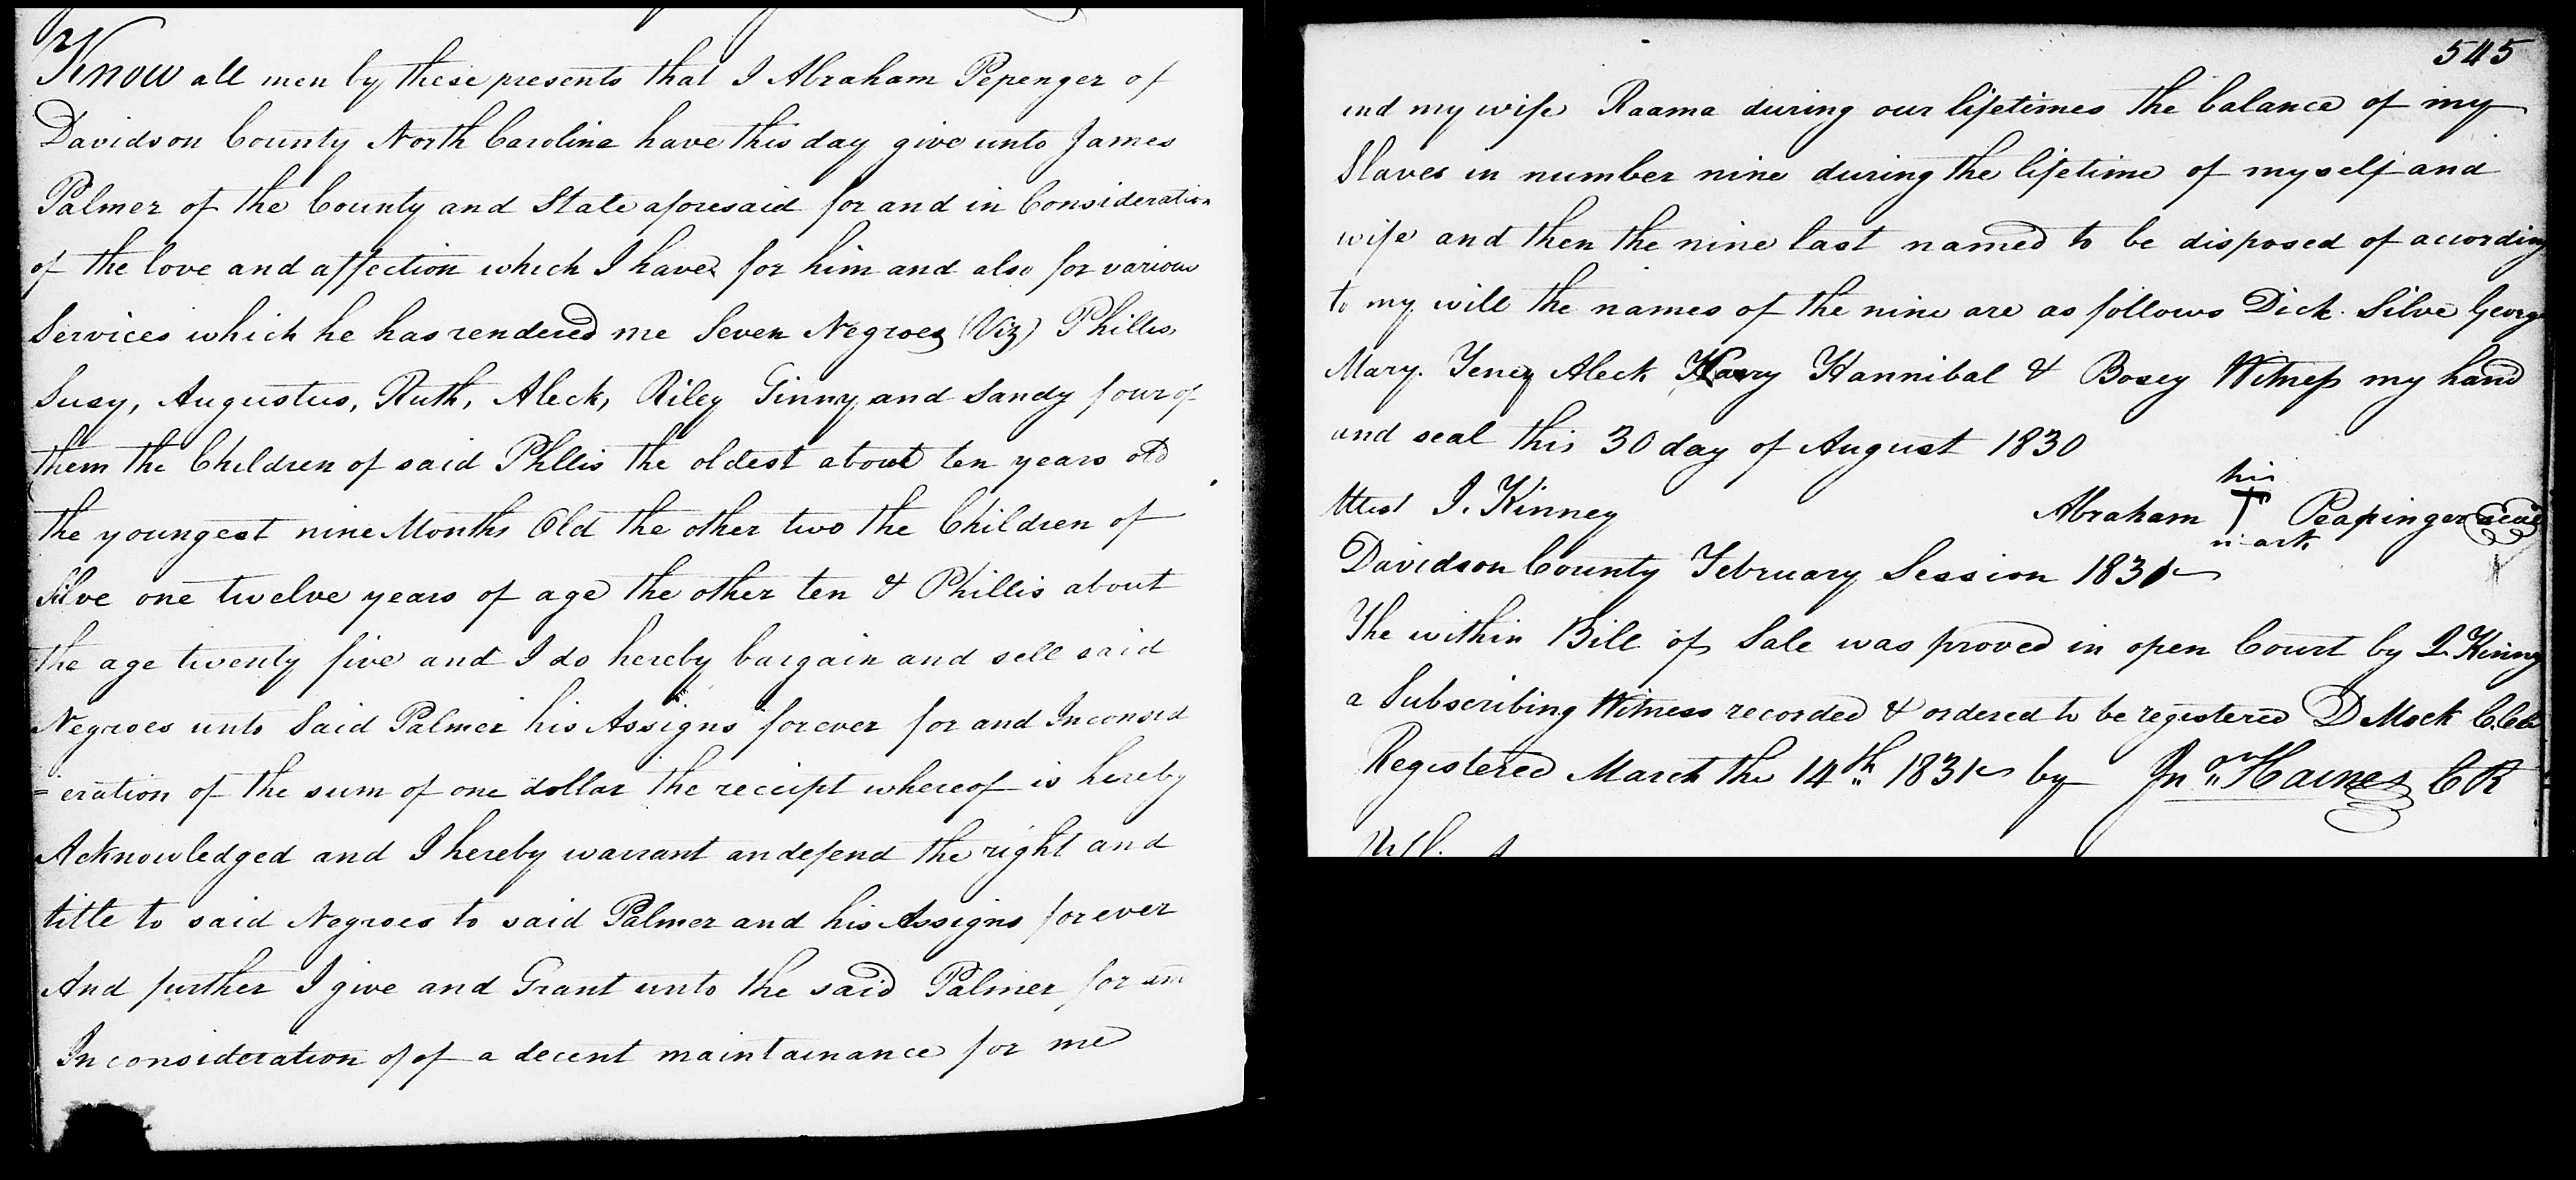 Know all men by these presents that I Abraham Pepenger of
Davidson County North Carolina have this day give unto James
Palmer of the County and State aforesaid for and in Consideration
of the love and affection which I have for him and also for various
Services which he has rendered me Seven Negroes (Viz) Phillis
Susy, Augustus, Ruth, Aleck, Riley Ginny and Sandy four of
them the Children of said Phllis the oldest about ten years old
the youngest nine Months Old the other two the Children of
Silve one twelve years of age the other ten & Phillis about
the age twenty five and I do hereby bargain and sell said
Negroes unto Said Palmer his Assigns forever for and Inconsid
=eration of the sum of one dollar the receipt whereof is hereby
Acknowledged and I hereby warrant an defend the right and
title to said Negroes to said Palmer and his Assigns forever
And further I give and Grant unto the said Palmer for
In consideration of of a decent maintainance for me
545
and my wife Raama during our lifetimes the balance of my
Slaves in number nine during the lifetime of myself and
wife and then the nine last named to be disposed of according
to my will the names of the nine are as follows Dick. Silve George
Mary. Jeney Aleck Harry Hannibal & Bosey Witness my hand
and seal this 30 day of August 1830
his
Attest J. Kinney Abraham Peapinger seal
mark
Davidson County February Session 1831
The within Bill of Sale was proved in open Court by J. Kinney
a Subscribing Witness recorded & ordered to be registered D Mock C.C.C.
Registered March the 14th 1831 by Jno Haines C R